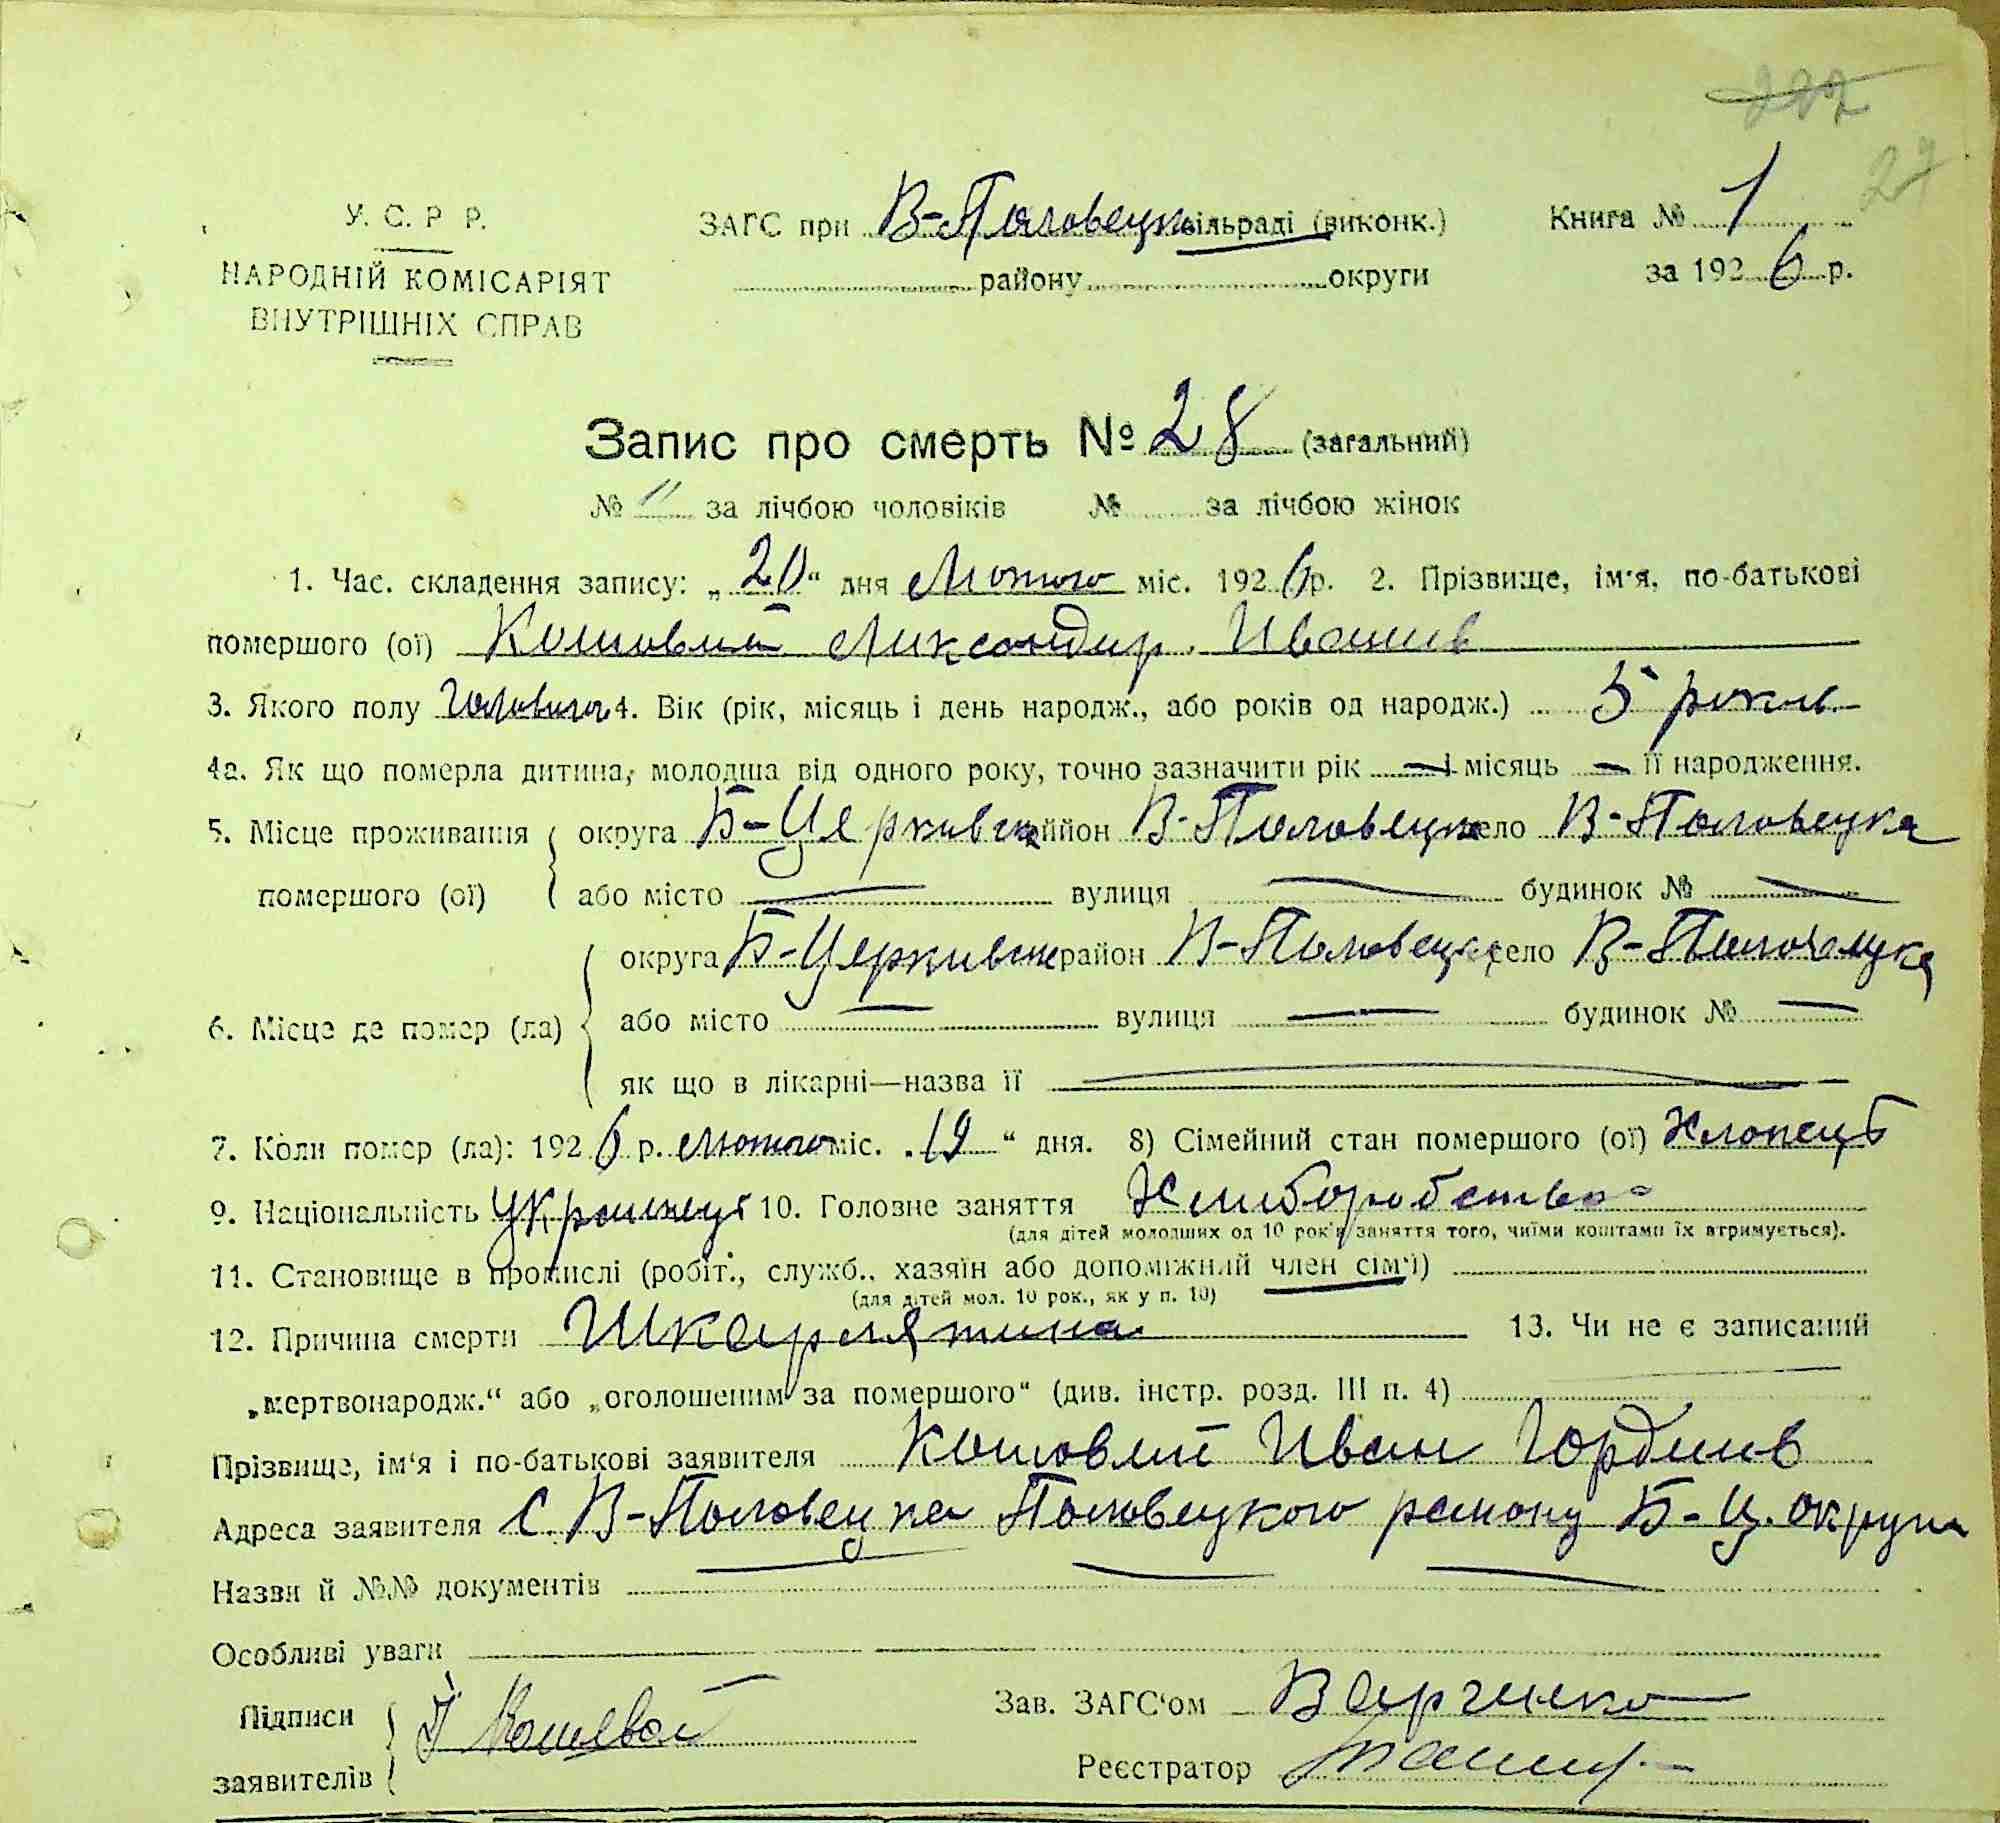 227
27
У. С. Р Р. ЗАГС при В-Половецк. сільраді (виконк.) Книга № 1
НАРОДНІЙ КОМІСАРІЯТ району округи за 1926 р.
ВНУТРІШНІХ СПРАВ
Запис про смерть № 28 (загальний)
№ 11 за лічбою чоловіків № за лічбою жінок
1. Час. складення запису: „20“ дня Лютого міс. 1926 р. 2. Прізвище, ім'я, по-батькові
помершого (ої) Кошовий Олександр Иванів
3. Якого полу Чоловічого 4. Вік (рік, місяць і день народж., або років од народж.) 5 років
4а. Як що померла дитина, молодша від одного року, точно зазначити рік — і місяць — її народження.
5. Місце проживання округа Б-Церківськ район В-Половецьк село В-Половецка
помершого (ої) або місто — вулиця — будинок № —
округа Б-Церківськ район В-Половецьк село В-Половецка
6. Місце де помер (ла) або місто — вулиця — будинок № —
як що в лікарні—назва її —
7. Коли помер (ла): 1926 р. Лютого міс. „19“ дня. 8) Сімейний стан помершого (ої) Хлопець
9. Національність Українець 10. Головне заняття Хліборобство
(для дітей молодших од 10 років заняття того, чиїми коштами їх втримується).
11. Становище в промислі (робіт., служб., хазяїн або допоміжний член сім'ї)
(для дітей мол. 10 рок., як у п. 10)
12. Причина смерти Шкарлятина 13. Чи не є записаний
„мертвонародж.“ або „оголошеним за помершого“ (див. інстр. розд. III п. 4) —
Прізвище, ім'я і по-батькові заявителя Кошовий Иван Гордиів
Адреса заявителя С. В-Половецка Половецкого району Б-Ц. округи
Назви й №№ документів — — —
Особливі уваги
Підписи Кошевой Зав. ЗАГС'ом Варченко
заявителів Реєстратор